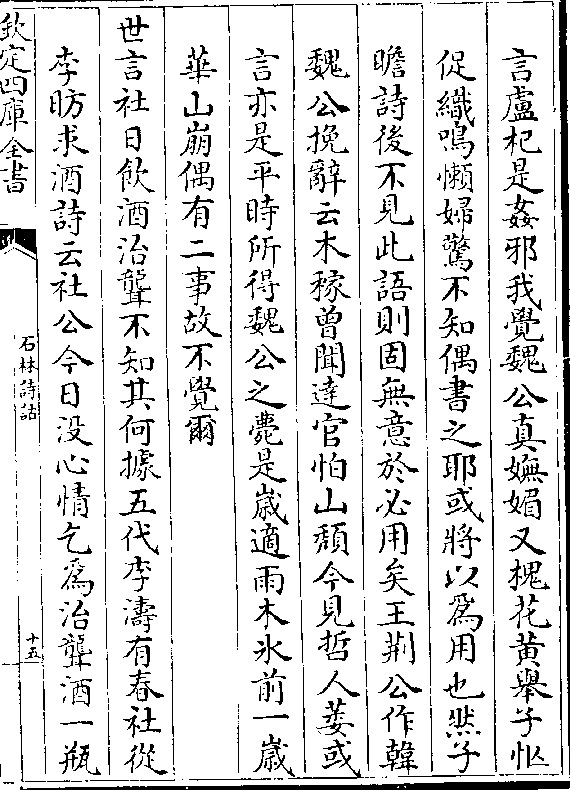 言盧杞是姦邪我覺魏公真嫵媚又槐花黃舉子忙
促織鳴懶婦驚不知偶書之耶或將以為用也然子
瞻詩後不見此語則固無意於必用矣王荆公作韓
魏公挽辭云木稼曾聞達官怕山頹今見哲人萎或
言亦是平時所得魏公之薨是嵗適雨木氷前一嵗
華山崩偶有二事故不覺爾
世言社日飲酒治聾不知其何據五代李濤有春社從
李昉求酒詩云社公今日没心情乞為治聾酒一瓶
欽定四庫全書
石林詩話
十五